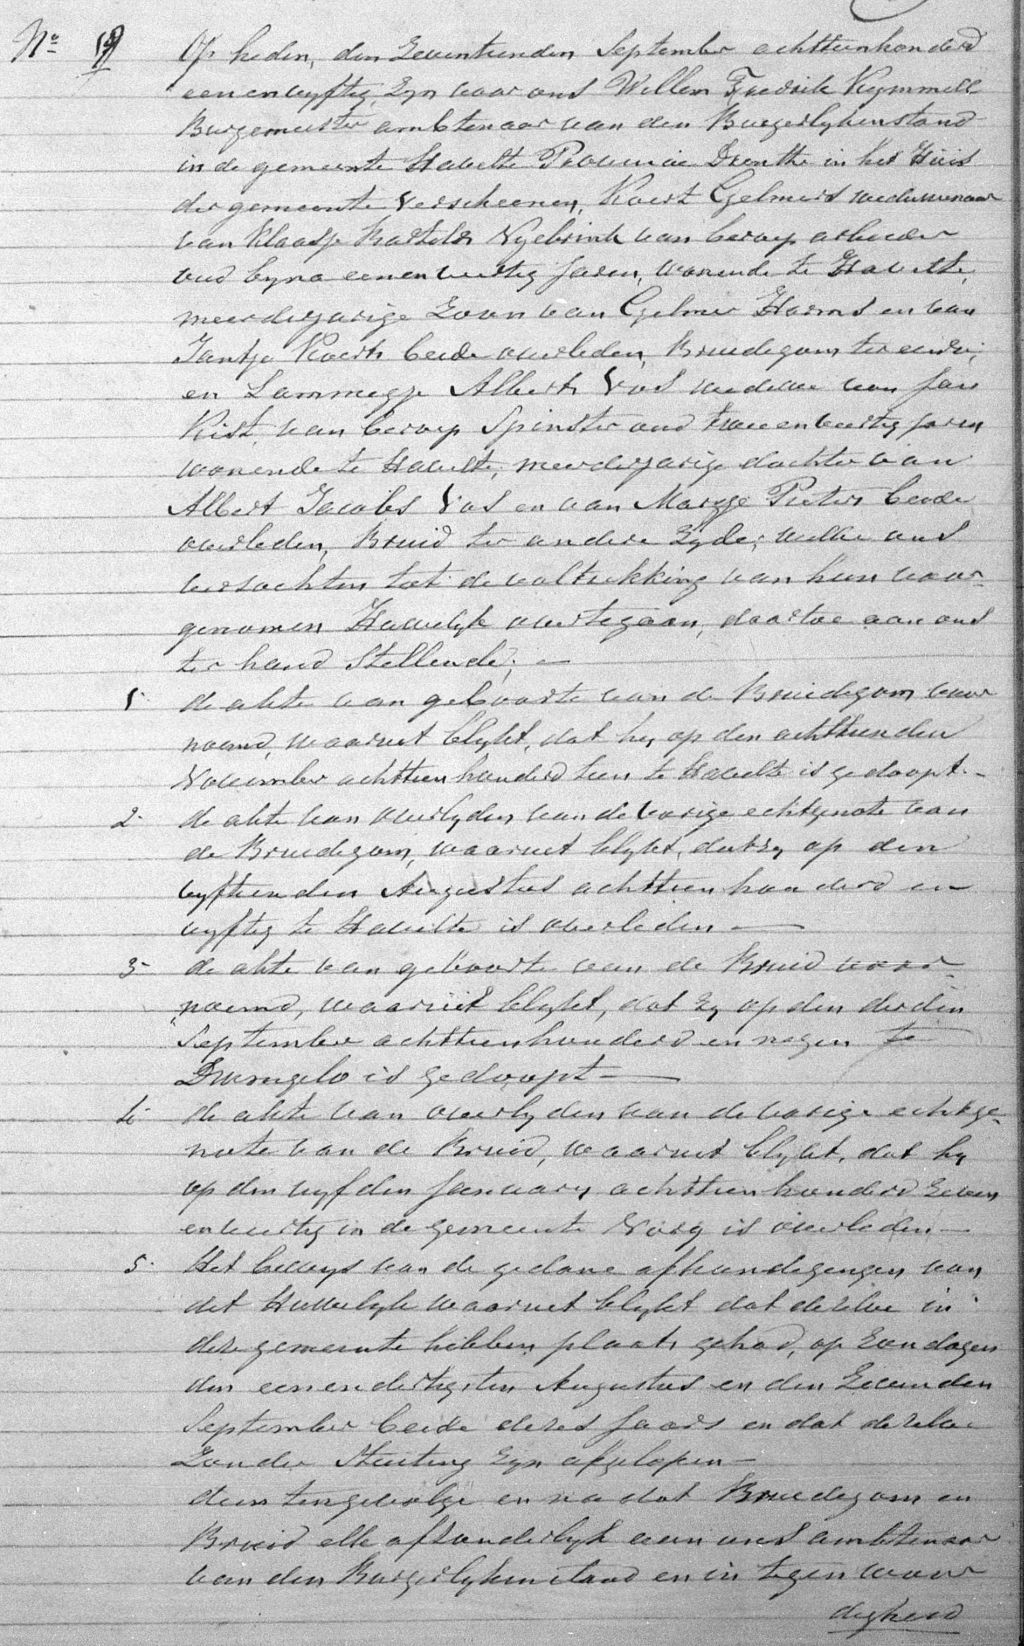 No 19 Op heden, den Zeventienden September achttienhonderd
eenenvyftig, Zyn voor ons Willem Fredrik Kymmell
Burgemeester ambtenaar van den Burgerlykenstand
in de gemeente Havelte Provincie Drenthe in het Huis
der gemeente verscheenen, Koert Gelmers weduwenaar
van Klaasje Bartelds Nyebrink van beroep arbeider
oud byna eenenveertig jaren, wonende te Havelte,
meerderjarige Zoon van Gelmer Harms en van
Jantje Koerts beide overleden, Bruidegom ter eenre;
en Lammegje Alberts Vos weduwe van Jan
Kist, van beroep Spinster oud tweeenveertig jaren
wonende te Havelte, meerderjarige dochter van
Albert Jacobs Vos en van Margje Pieters beide
overleden, Bruid ter andere Zyde; welke ons
versochten tot de voltrekking van hun voor-
genomen Huwelyk overtegaan, daartoe aan ons
ter hand Stellende; —
1. de akte van geboorte van de Bruidegom voor
noemd, waaruit blykt, dat hy op den achttienden
November achttienhonderd tien te Havelte is gedoopt.-
2. de akte van overlyden van de vorige echtgenote van
de Bruidegom, waaruit blykt, dat zy op den
vyftienden Augustus achttienhonderd en
vyftig te Havelte is overleden —
3. de akte van geboorte van de Bruid voor-
noemd, waaruit blykt, dat Zy op den derden
September achttienhonderd en negen te
Dwingelo is gedoopt —
4. de akte van overlyden van de vorige echtge-
note van de Bruid, waaruit blykt, dat hy
op den vyfden January achttienhonderd Zeven
enveertig in de gemeente Norg is overleden —
5. Het bewys van de gedane afkondegengen van
dit Huwelyk waaruit blykt dat dezelve in
deze gemeente hebben plaats gehad, op Zondagen
den eenendertigsten Augustus en den Zevenden
September beide dezes Jaars en dat dezelve
Zonder Stuiting Zyn afgelopen —
dien tengevolge en na dat Bruidegom en
Bruid elk afsonderlyk aan ons ambtenaar
van den Burgerlykenstand en in tegenwoor
digheid